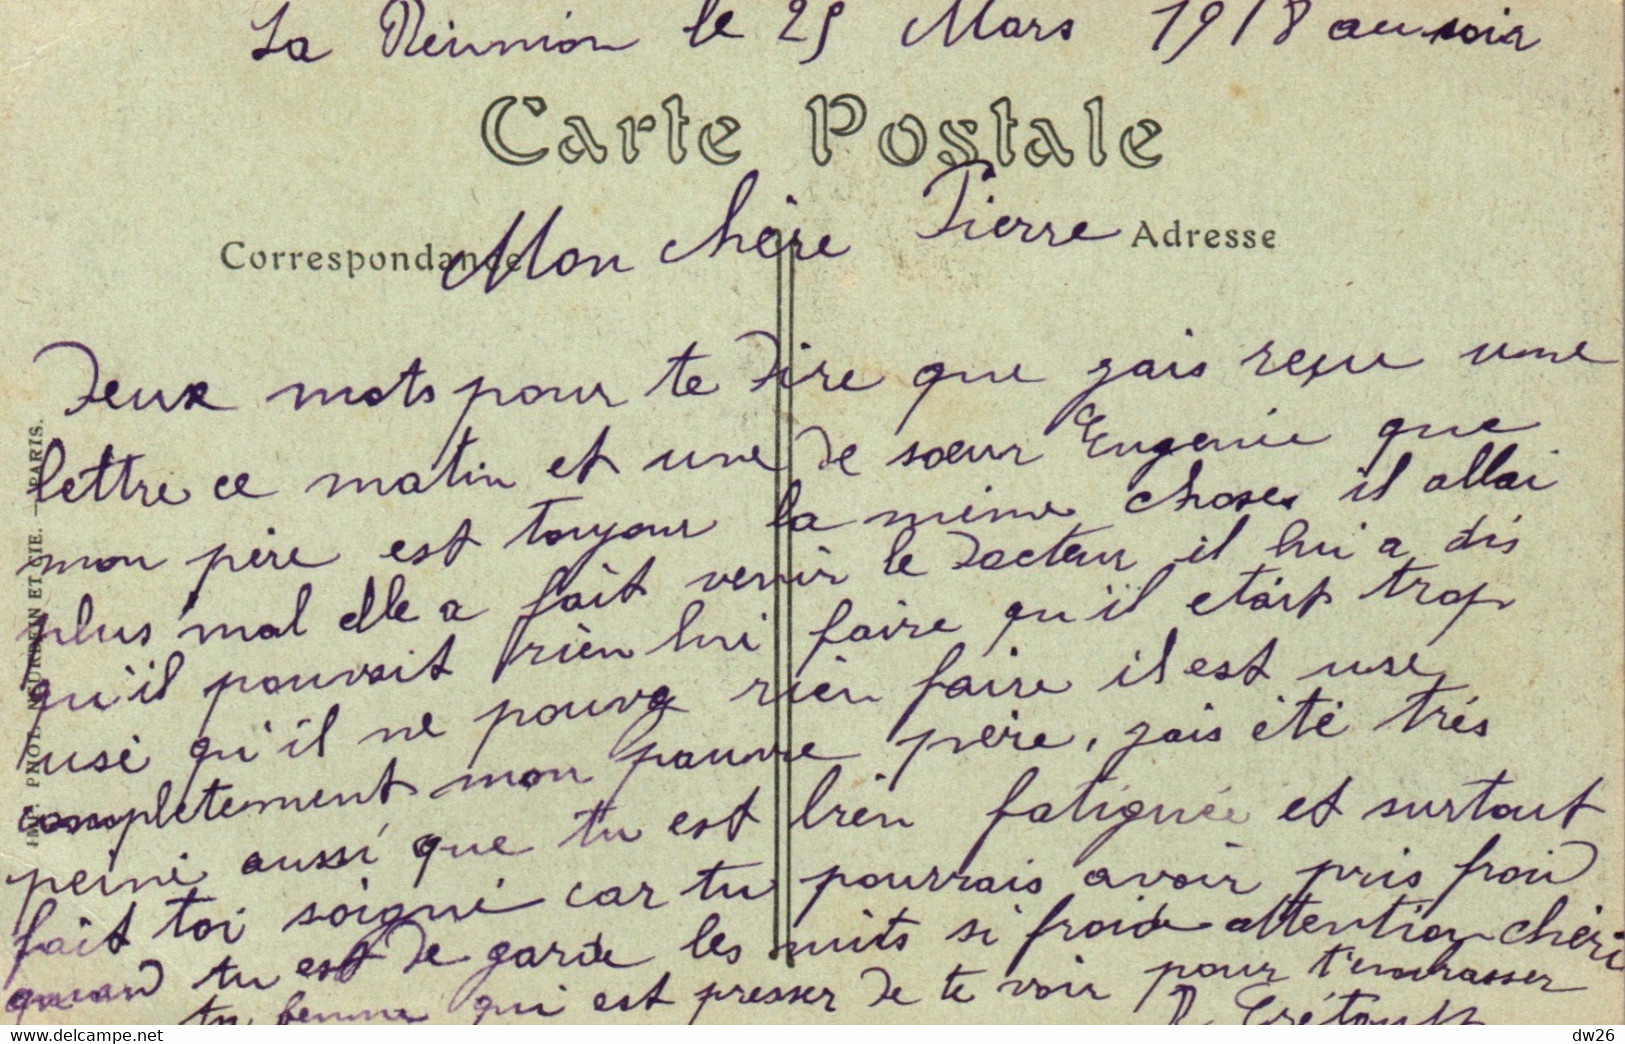 La Réunion le 25 Mars 1918 au soir
Carte Postale
Mon chère Pierre
Correspondance
Adresse
Deux mots pour te dire que jais reçu une
lettre ce matin et une de sœur Eugenie que
mon père est toujour la même choses il allai
plus mal elle a fait venir le Docteur il lui a dis
qu'il pouvait rien lui faire qu'il etait trop
usé qu'il ne pouva rien faire il est use
completement mon pauvre père, jais été très
peiné aussi que tu est bien fatiguée et surtout
fait toi soigné car tu pourrais avoir pris froid
quand tu est de garde les nuits si froide attention chéri
ta femme qui est presser de te voir pour t'embrasser
IMP. PHOT. NEURDEIN ET CIE. — PARIS.
dw26